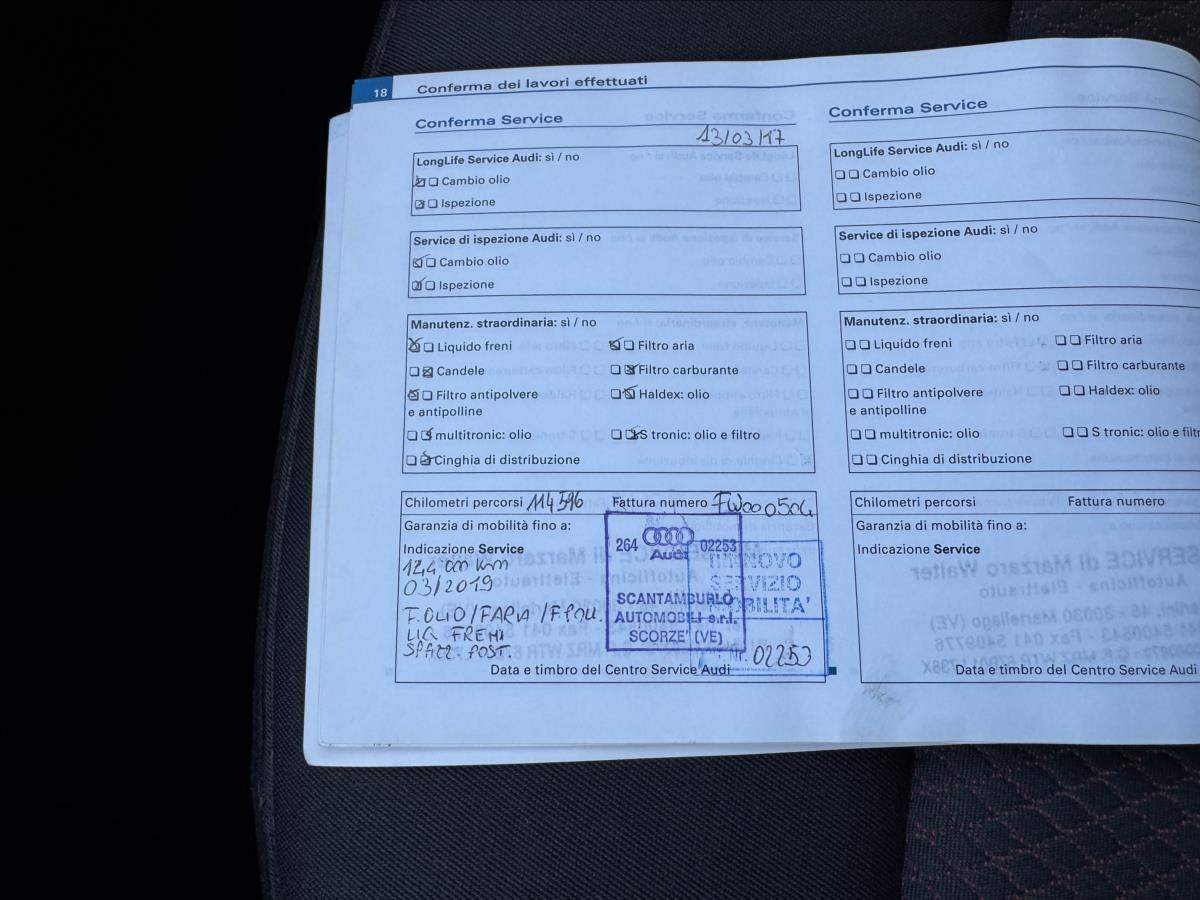 18 Conferma dei lavori effettuati
Conferma Service
13/03/17
LongLife Service Audi: sì / no
Cambio olio
Ispezione
Service di ispezione Audi: sì / no
Cambio olio
Ispezione
Manutenz. straordinaria: sì / no
Liquido freni Filtro aria
Candele Filtro carburante
Filtro antipolvere Haldex: olio
e antipolline
multitronic: olio S tronic: olio e filtro
Cinghia di distribuzione
Chilometri percorsi 114596 Fattura numero FW000504
Garanzia di mobilità fino a:
Indicazione Service
03/2019
F.OLIO/FARIA/FPOLL.
LIQ FRENI
SPAZZ. POST.
264 02253
Audi
SCANTAMBURLO
AUTOMOBILI s.r.l.
SCORZE' (VE)
RINNOVO
SERVIZIO
MOBILITA'
02253
Data e timbro del Centro Service Audi
Conferma Service
LongLife Service Audi: sì / no
Cambio olio
Ispezione
Service di ispezione Audi: sì / no
Cambio olio
Ispezione
Manutenz. straordinaria: sì / no
Liquido freni Filtro aria
Candele Filtro carburante
Filtro antipolvere Haldex: olio
e antipolline
multitronic: olio S tronic: olio e filtr
Cinghia di distribuzione
Chilometri percorsi Fattura numero
Garanzia di mobilità fino a:
Indicazione Service
Data e timbro del Centro Service Audi